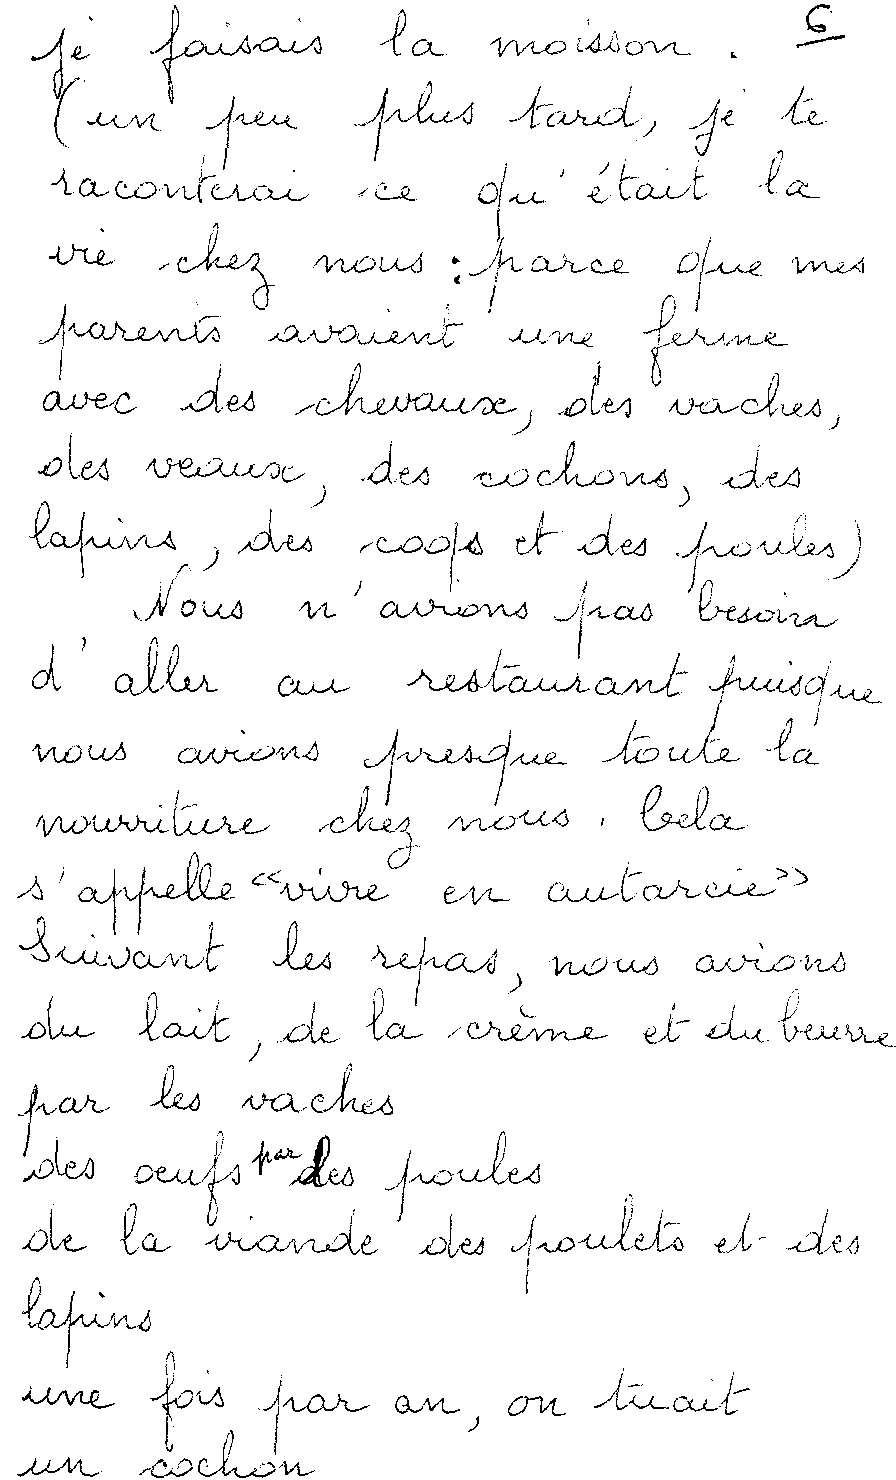 6
je faisais la moisson.
(un peu plus tard, je te
raconterai ce qu'était la
vie chez nous : parce que mes
parents avaient une ferme
avec des chevaux, des vaches,
des veaux, des cochons, des
lapins, des coqs et des poules)
Nous n'avions pas besoin
d'aller au restaurant puisque
nous avions presque toute la
nourriture chez nous. Cela
s'appelle "vivre en autarcie"
Suivant les repas, nous avions
du lait, de la crème et du beurre
par les vaches
des oeufs par les poules
de la viande des poulets et des
lapins
une fois par an, on tuait
un cochon